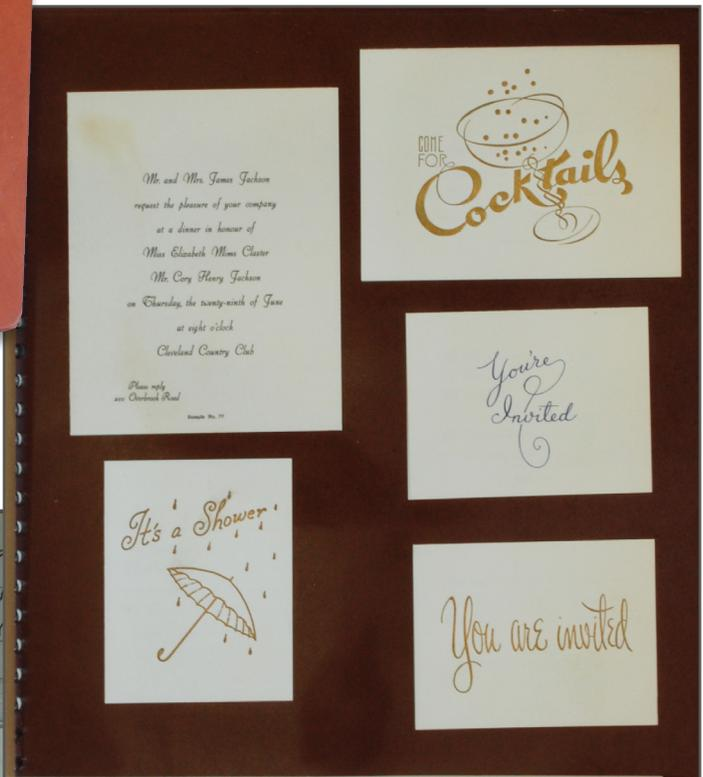 Mr. and Mrs. James Jackson
request the pleasure of your company
at a dinner in honour of
Miss Elizabeth Mims Claster
Mr. Cory Henry Jackson
on Thursday, the twenty-ninth of June
at eight o'clock
Cleveland Country Club
Please reply
Overbrook Road
Sample No. 77
COME
FOR
Cocktails
You're
Invited
It's a Shower
You are invited